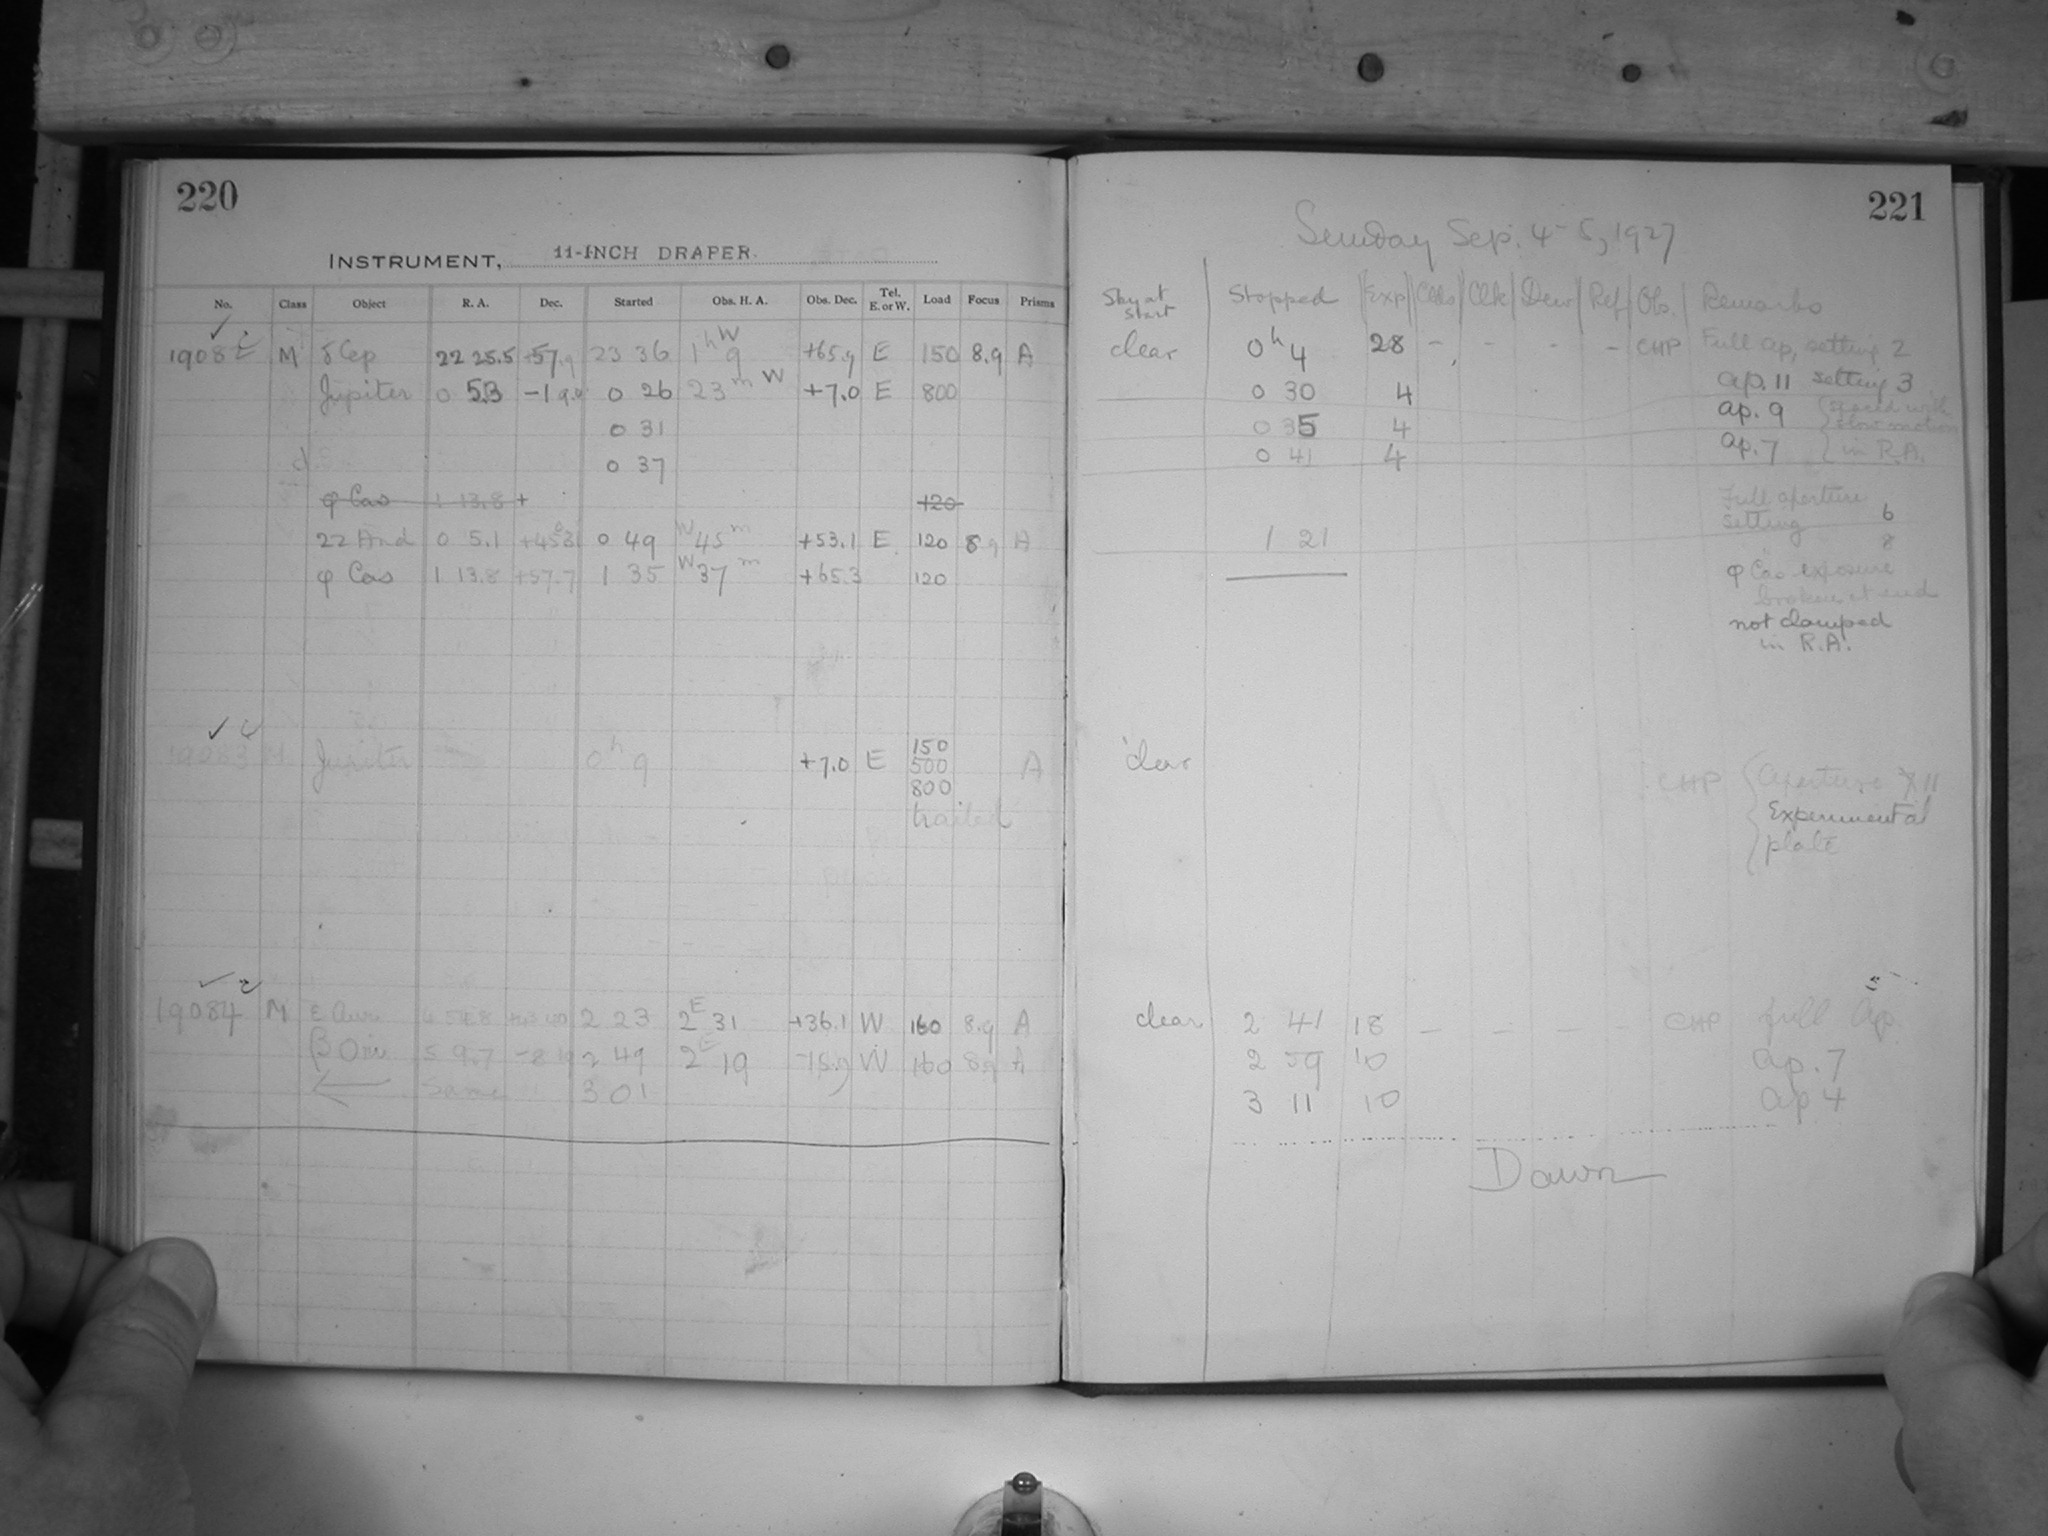 220
INSTRUMENT, 11-INCH DRAPER.
No. Class Object R. A. Dec. Started Obs. H. A. Obs. Dec. Tel. E. or W. Load Focus Prisms
M δ Cep 22 25.5 +57.9 23 36 1ʰ 9 W +65.9 E 150 8.9 A
Jupiter 0 5.3 0 26 23ᵐ W +7.0 E 800
0 31
0 37
φ Cas 1 13.8 + 120
22 And 0 5.1 0 49 W 45ᵐ +53.1 E 120 8.9 A
φ Cas 1 13.8 +57.7 1 35 W 37ᵐ +65.3 120
19083 M Jupiter 0ʰ 9 +7.0 E 150 A
500
800
trailed
19084 M ε Aur 2 23 2ᴱ 31 +36.1 W 160 8.9 A
β Ori 5 9.7 2 49 2ᴱ 19 -15.9 W 160 8.9 A
Same 3 01
221
Sunday Sep. 4-5, 1927
Sky at start Stopped Exp Clk Dew Ref Obs. Remarks
clear 0ʰ 4 28 - - - - CHP Full ap, setting 2
0 30 4 ap. 11 setting 3
0 35 4 ap. 9 spaced with slow motion
0 41 4 ap. 7 in R.A.
Full aperture
setting 6
1 21 8
φ Cas exposure
broken at end
not clamped
in R.A.
clear CHP Aperture 11
Experimental
plate
clear 2 41 18 - - - CHP full ap
2 59 10 ap. 7
3 11 10 ap 4
Dawn